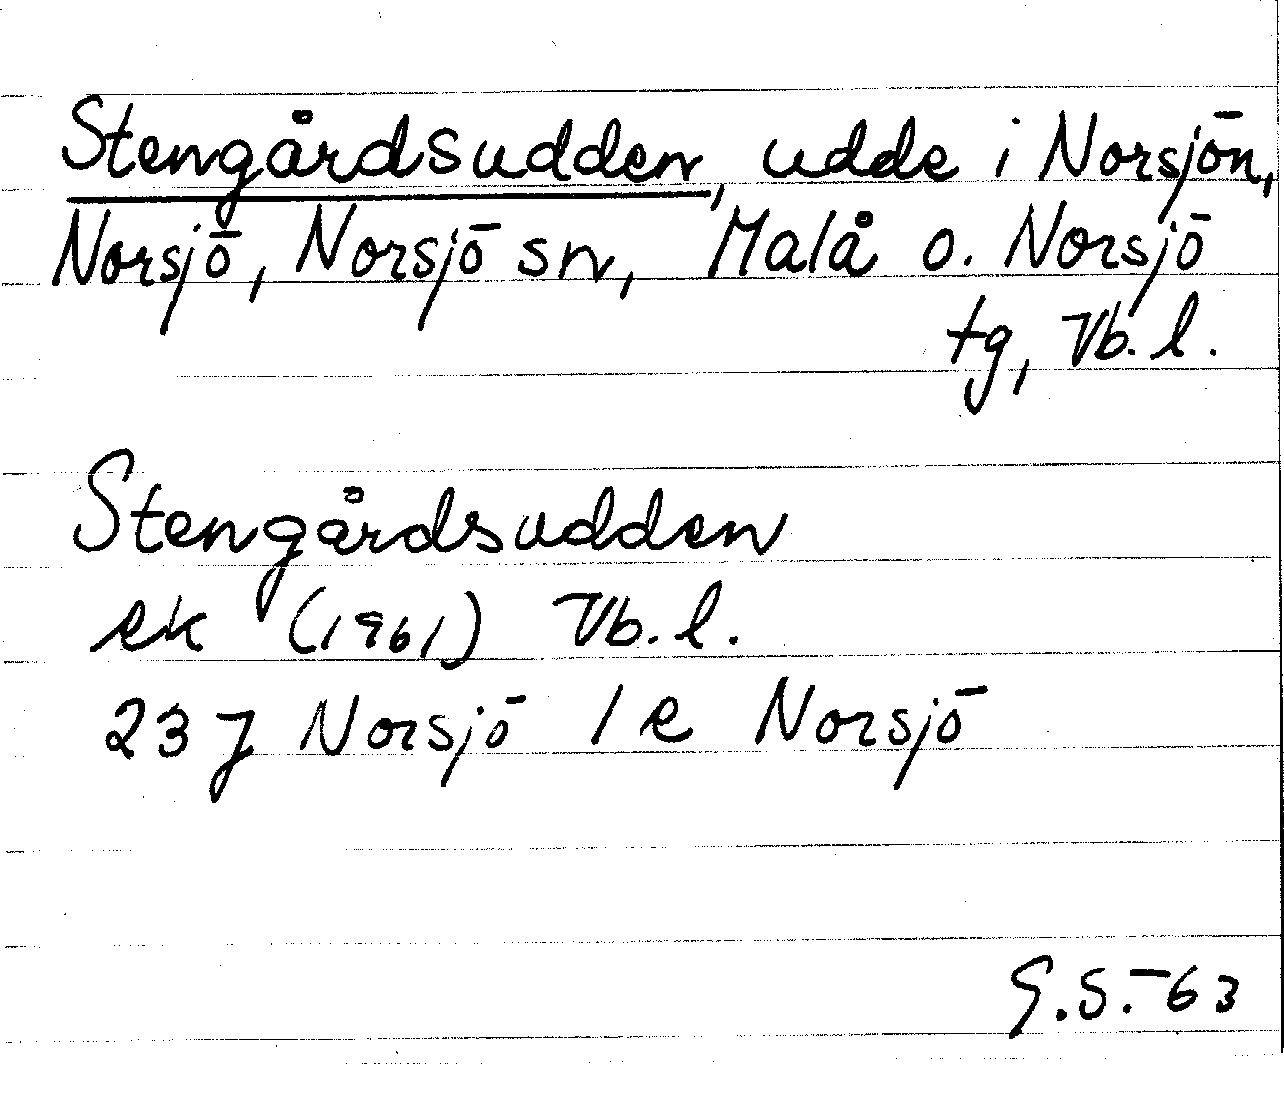 Stengårdsudden, udde i Norsjön,
Norsjö, Norsjö sn, Malå o. Norsjö
tg, Vb. l.
Stengårdsudden
ek (1961) Vb. l.
23 J Norsjö 1 e Norsjö
G.S.-63